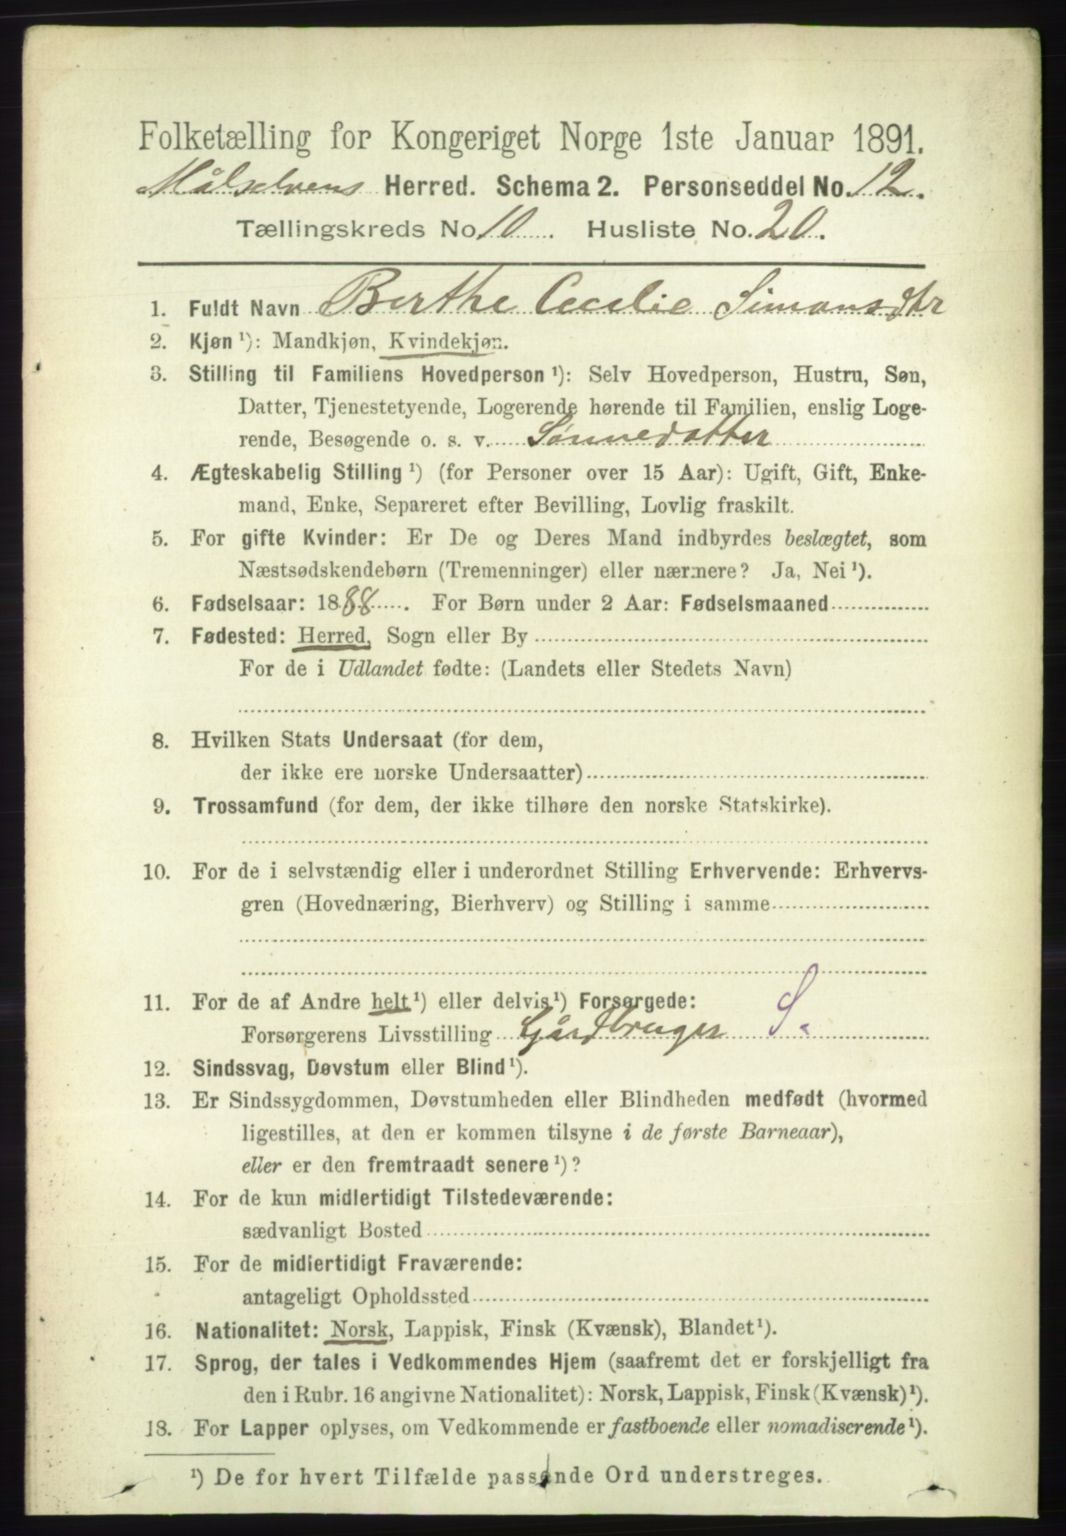 Folketælling for Kongeriget Norge 1ste Januar 1891.
Målselvens Herred. Schema 2. Personseddel No. 12.
Tællingskreds No. 10. Husliste No. 20.
1. Fuldt Navn Berthe Cecelie Simonsdtr
2. Kjøn ¹): Mandkjøn, Kvindekjøn.
3. Stilling til Familiens Hovedperson ¹): Selv Hovedperson, Hustru, Søn,
Datter, Tjenestetyende, Logerende hørende til Familien, enslig Loge-
rende, Besøgende o. s. v. Sønnedatter
4. Ægteskabelig Stilling ¹) (for Personer over 15 Aar): Ugift, Gift, Enke-
mand, Enke, Separeret efter Bevilling, Lovlig fraskilt.
5. For gifte Kvinder: Er De og Deres Mand indbyrdes beslægtet, som
Næstsødskendebørn (Tremenninger) eller nærmere? Ja, Nei ¹).
6. Fødselsaar: 1888. For Børn under 2 Aar: Fødselsmaaned
7. Fødested: Herred, Sogn eller By
For de i Udlandet fødte: (Landets eller Stedets Navn)
8. Hvilken Stats Undersaat (for dem,
der ikke ere norske Undersaatter)
9. Trossamfund (for dem, der ikke tilhøre den norske Statskirke).
10. For de i selvstændig eller i underordnet Stilling Erhvervende: Erhvervs-
gren (Hovednæring, Bierhverv) og Stilling i samme
11. For de af Andre helt ¹) eller delvis ¹) Forsørgede:
Forsørgerens Livsstilling Gårdbruger S.
12. Sindssvag, Døvstum eller Blind ¹).
13. Er Sindssygdommen, Døvstumheden eller Blindheden medfødt (hvormed
ligestilles, at den er kommen tilsyne i de første Barneaar),
eller er den fremtraadt senere ¹)?
14. For de kun midlertidigt Tilstedeværende:
sædvanligt Bosted
15. For de midlertidigt Fraværende:
antageligt Opholdssted
16. Nationalitet: Norsk, Lappisk, Finsk (Kvænsk), Blandet ¹).
17. Sprog, der tales i Vedkommendes Hjem (saafremt det er forskjelligt fra
den i Rubr. 16 angivne Nationalitet): Norsk, Lappisk, Finsk (Kvænsk) ¹).
18. For Lapper oplyses, om Vedkommende er fastboende eller nomadiserende ¹).
¹) De for hvert Tilfælde passende Ord understreges.